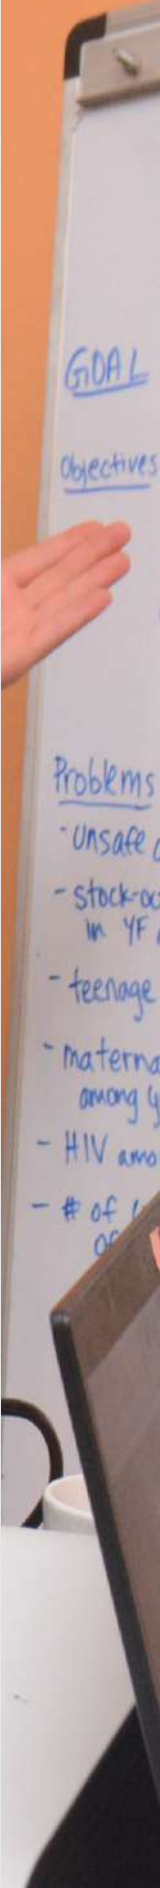 GOAL
Objectives
Problems
- unsafe
- stock-ou
in YF
- teenage
- materna
among y
- HIV amo
- # of
of